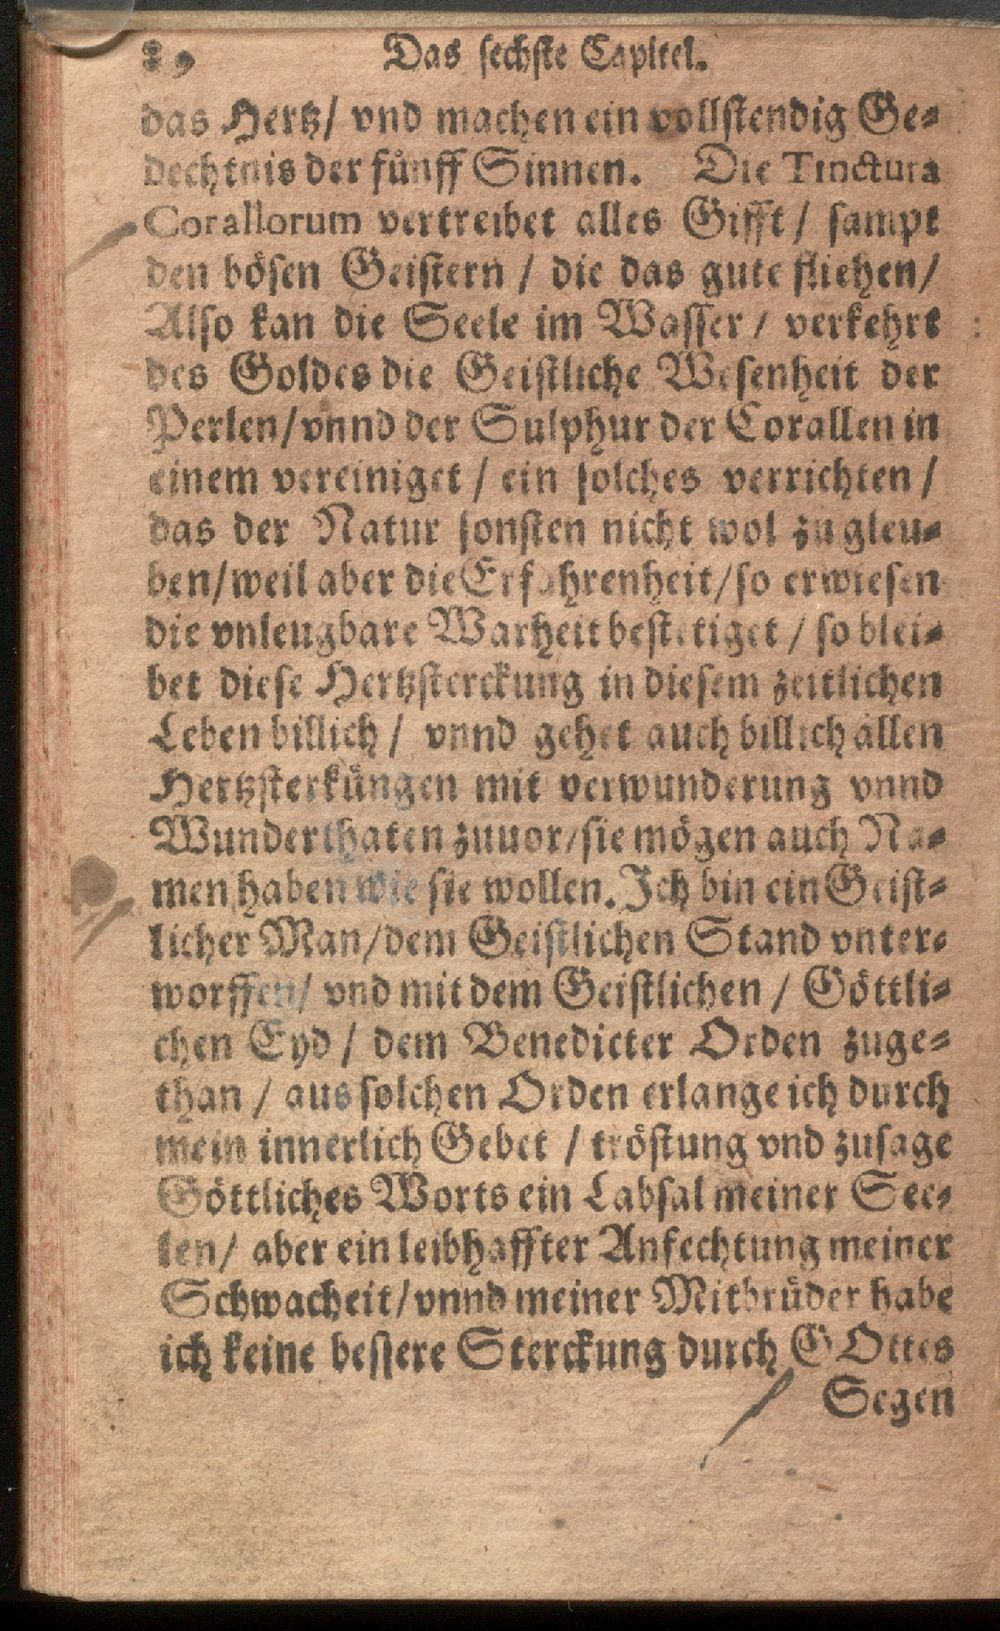 Das sechste Capitel.
das Hertz/ vnd machen ein vollstendig Ge-
dechtnis der fünff Sinnen. Die Tinctura
Corallorum vertreibet alles Gifft / sampt
den bösen Geistern / die das gute fliehen/
Also kan die Seele im Wasser / verkehrt
des Goldes die Geistliche Wesenheit der
Perlen/vnnd der Sulphur der Corallen in
einem vereiniget / ein solches verrichten /
das der Natur sonsten nicht wol zu gleu-
ben/weil aber die Erfahrenheit/so erwiesen
die vnleugbare Warheit bestetiget / so blei-
bet diese Hertzsterckung in diesem zeitlichen
Leben billich / vnnd gehet auch billich allen
Hertzsterküngen mit verwunderung vnnd
Wunderthaten zuuor/sie mögen auch Na-
men haben wie sie wollen. Ich bin ein Geist-
licher Man/dem Geistlichen Stand vnter-
worffen/ vnd mit dem Geistlichen / Göttli-
chen Eyd / dem Benedicter Orden zuge-
than / aus solchen Orden erlange ich durch
mein innerlich Gebet / tröstung vnd zusage
Göttliches Worts ein Labsal meiner See-
len/ aber ein leibhaffter Anfechtung meiner
Schwacheit/vnnd meiner Mitbrüder habe
ich keine bessere Sterckung durch GOttes
Segen